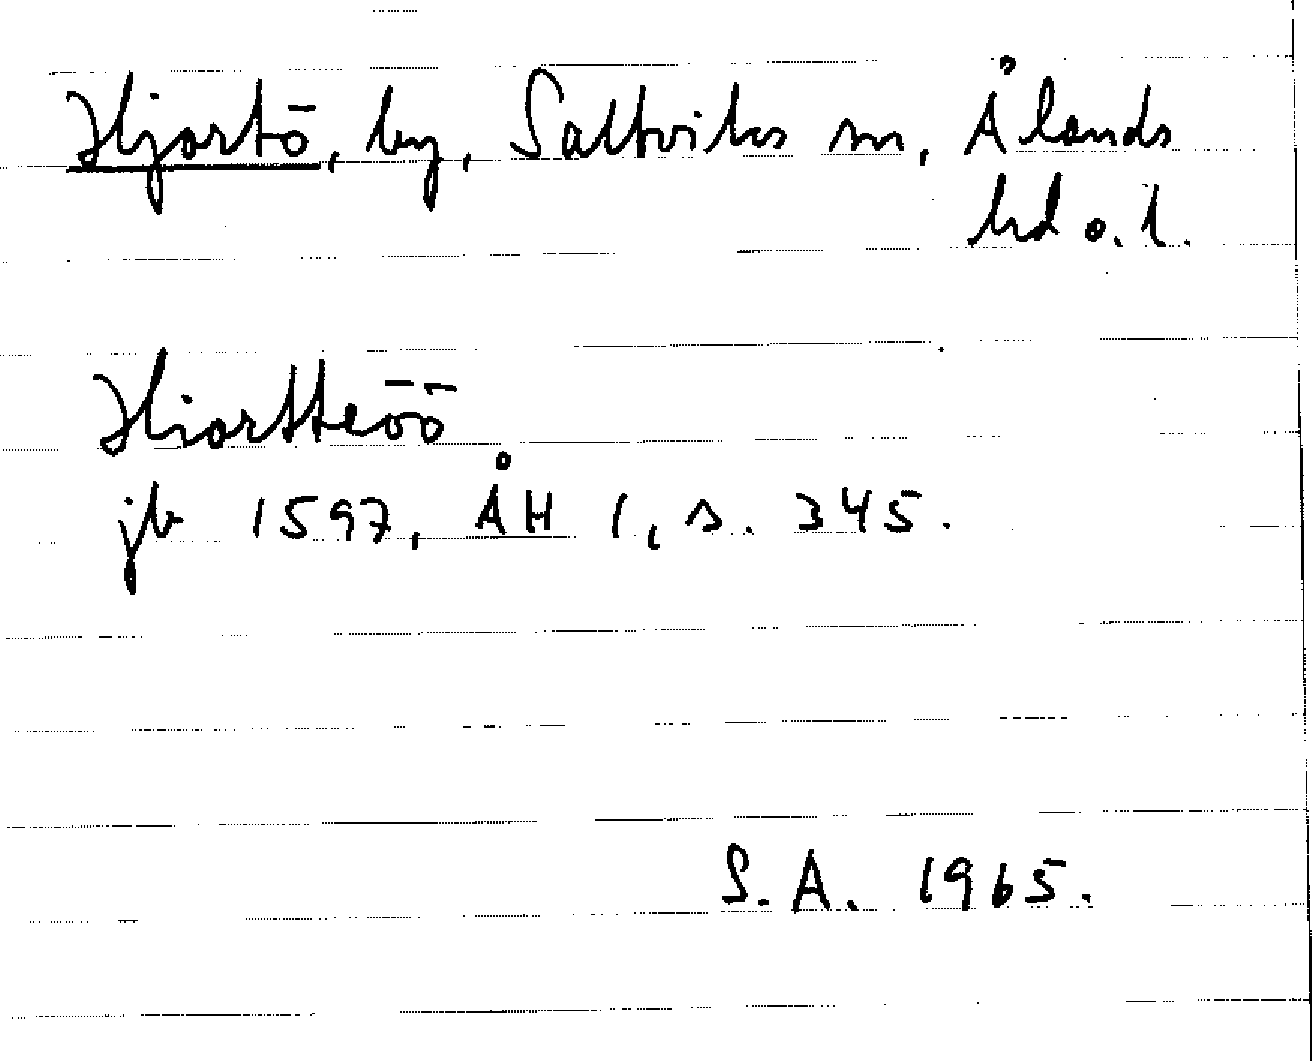 Hjortö, by, Saltviks sn, Ålands
hd o. l.
Hiortteöö
jb 1597, ÅH 1, s. 345.
S. A. 1965.